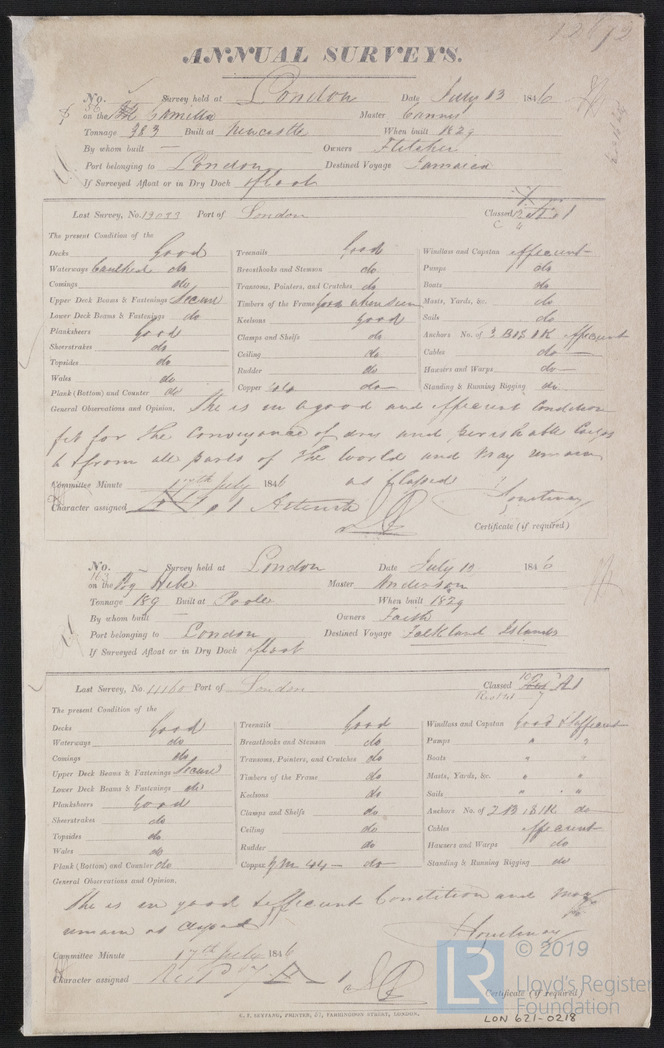 ANNUAL SURVEYS.
No. 56 Survey held at London Date July 13 1846
on the Camilla Master
Tonnage 383 Built at Newcastle When built 1829
By whom built — Owners Fletcher
Port belonging to London Destined Voyage Jamaica
If Surveyed Afloat or in Dry Dock afloat
Last Survey, No. 19033 Port of London Classed
The present Condition of the
Decks Good Treenails Good Windlass and Capstan efficient
Waterways Caulked do Breasthooks and Stemson do Pumps do
Comings do Transoms, Pointers, and Crutches do Boats do
Upper Deck Beams & Fastenings Secure Timbers of the Frame good when seen Masts, Yards, &c. do
Lower Deck Beams & Fastenings do Keelsons Good Sails do
Planksheers Good Clamps and Shelfs do Anchors No. of 3 B 1 S 1 K efficient
Sheerstrakes do Ceiling do Cables do
Topsides do Rudder do Hawsers and Warps do
Wales do Copper do Standing & Running Rigging do
Plank (Bottom) and Counter do
General Observations and Opinion, She is in a good and efficient Condition
fit for the Conveyance of dry and perishable Cargoes
to & from all parts of the World and may remain
as Classed
Committee Minute 17th July 1846
Character assigned
Certificate (if required)
No. 163 Survey held at London Date July 13 1846
on the Bg Hebe Master Anderson
Tonnage 189 Built at Poole When built 1829
By whom built — Owners Faith
Port belonging to London Destined Voyage Falkland Islands
If Surveyed Afloat or in Dry Dock afloat
Last Survey, No. 11160 Port of London Classed A1
The present Condition of the
Decks Good Treenails Good Windlass and Capstan Good & efficient
Waterways do Breasthooks and Stemson do Pumps " "
Comings do Transoms, Pointers, and Crutches do Boats " "
Upper Deck Beams & Fastenings Secure Timbers of the Frame do Masts, Yards, &c. " "
Lower Deck Beams & Fastenings do Keelsons do Sails " " "
Planksheers Good Clamps and Shelfs do Anchors No. of 2 B 1 S 1 K do
Sheerstrakes do Ceiling do Cables efficient
Topsides do Rudder do Hawsers and Warps do
Wales do Copper Y M 44 do Standing & Running Rigging do
Plank (Bottom) and Counter do
General Observations and Opinion.
She is in good & efficient Condition and may
remain as Classed
Committee Minute 17th July 1846
Character assigned
Certificate (if required)
LR © 2019
Lloyd's Register
Foundation
LON 621-0218